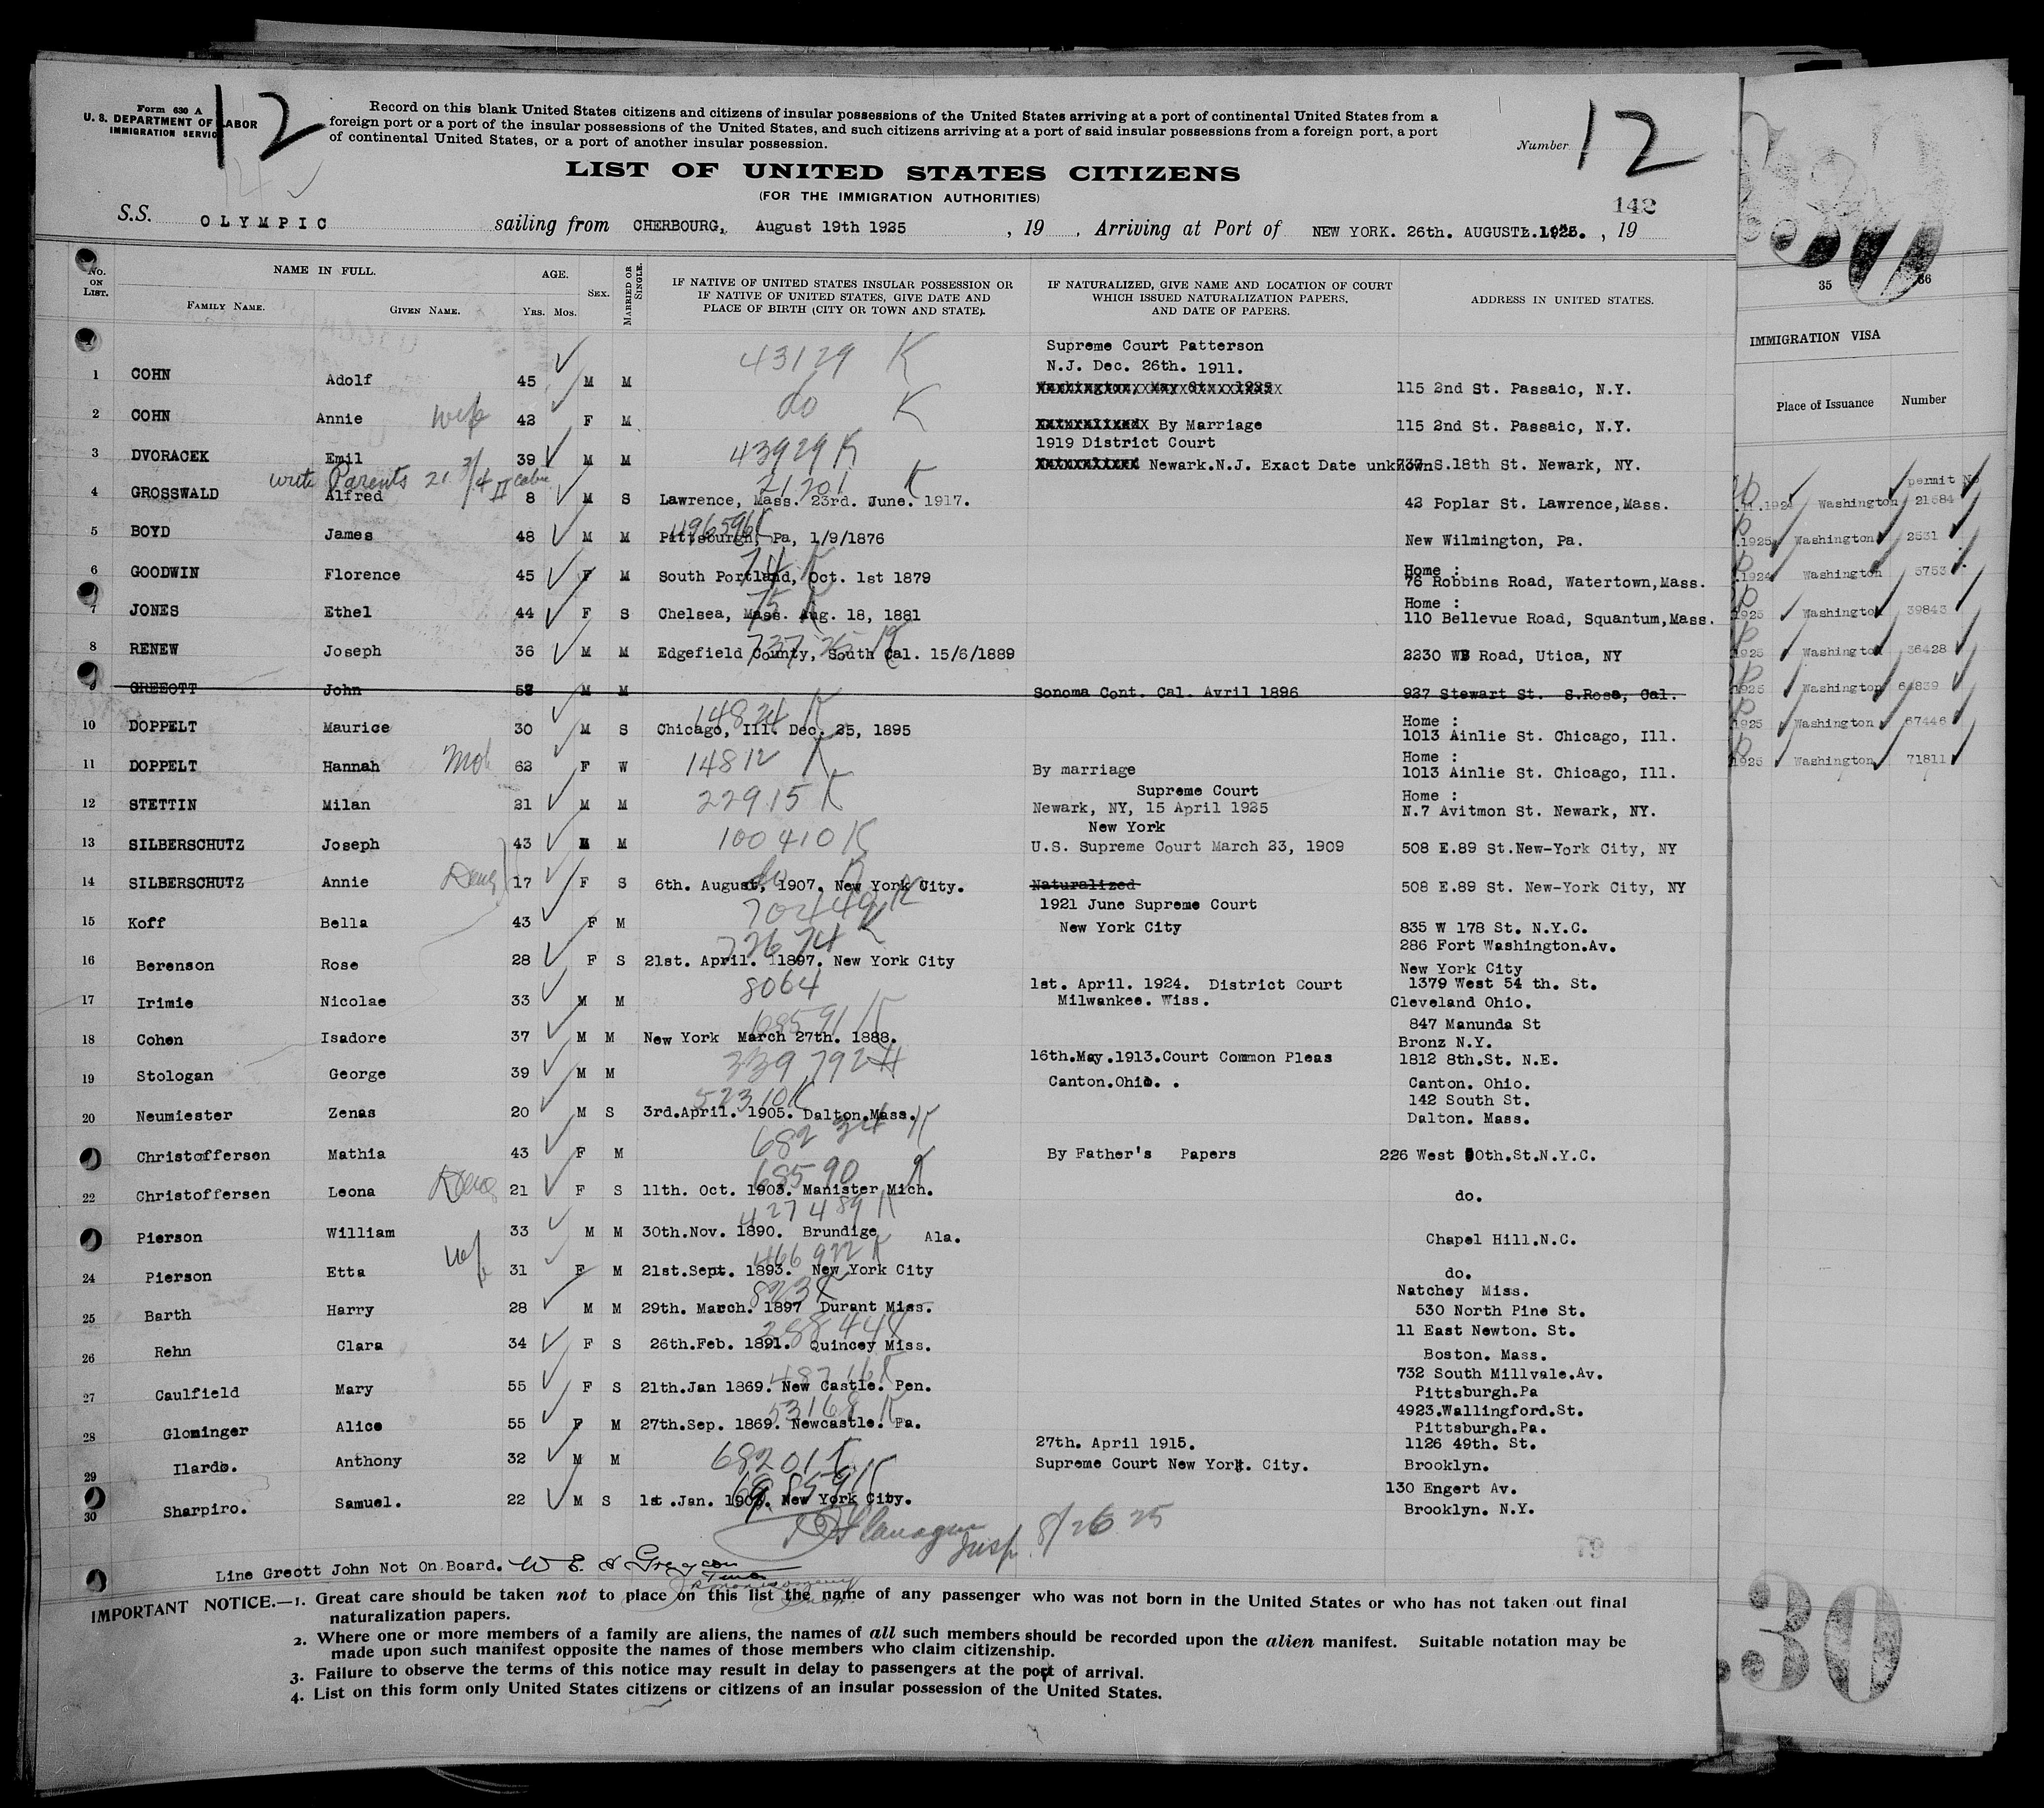 Form 630 A
U. S. DEPARTMENT OF LABOR
IMMIGRATION SERVICE
12
Record on this blank United States citizens and citizens of insular possessions of the United States arriving at a port of continental United States from a
foreign port or a port of the insular possessions of the United States, and such citizens arriving at a port of said insular possessions from a foreign port, a port
of continental United States, or a port of another insular possession.
Number 12
LIST OF UNITED STATES CITIZENS
(FOR THE IMMIGRATION AUTHORITIES)
142
S.S. OLYMPIC sailing from CHERBOURG, August 19th 1925 , 19 , Arriving at Port of NEW YORK. 26th. AUGUST. 1925. , 19
No. ON LIST. NAME IN FULL. AGE. SEX. MARRIED OR SINGLE. IF NATIVE OF UNITED STATES INSULAR POSSESSION OR IF NATIVE OF UNITED STATES, GIVE DATE AND PLACE OF BIRTH (CITY OR TOWN AND STATE). IF NATURALIZED, GIVE NAME AND LOCATION OF COURT WHICH ISSUED NATURALIZATION PAPERS, AND DATE OF PAPERS. ADDRESS IN UNITED STATES.
FAMILY NAME. GIVEN NAME. Yrs. Mos.
43129 K Supreme Court Patterson
N.J. Dec. 26th. 1911.
1 COHN Adolf 45 M M 115 2nd St. Passaic, N.Y.
2 COHN Annie wife 42 F M do K By Marriage 115 2nd St. Passaic, N.Y.
1919 District Court
3 DVORACEK Emil 39 M M 43929 K Newark.N.J. Exact Date unknown 737 S.18th St. Newark, NY.
with Parents 21 3/4 II cabin 21201 K
4 GROSSWALD Alfred 8 M S Lawrence, Mass. 23rd. June. 1917. 42 Poplar St. Lawrence,Mass.
5 BOYD James 48 M M Pittsburgh, Pa, 1/9/1876 New Wilmington, Pa.
74 K Home :
6 GOODWIN Florence 45 F M South Portland, Oct. 1st 1879 76 Robbins Road, Watertown,Mass.
75 K Home :
7 JONES Ethel 44 F S Chelsea, Mass. Aug. 18, 1881 110 Bellevue Road, Squantum,Mass.
8 RENEW Joseph 36 M M Edgefield County, South Cal. 15/6/1889 2230 WB Road, Utica, NY
9 GREEOTT John 58 M M Sonoma Cont. Cal. Avril 1896 927 Stewart St. S.Rosa, Cal.
14824 K Home :
10 DOPPELT Maurice 30 M S Chicago, Ill. Dec. 25, 1895 1013 Ainlie St. Chicago, Ill.
Home :
11 DOPPELT Hannah Moth 62 F W 14812 K By marriage 1013 Ainlie St. Chicago, Ill.
Supreme Court Home :
12 STETTIN Milan 31 M M 22915 K Newark, NY, 15 April 1925 N.7 Avitmon St. Newark, NY.
New York
13 SILBERSCHUTZ Joseph 43 M M 100410 K U.S. Supreme Court March 23, 1909 508 E.89 St.New-York City, NY
14 SILBERSCHUTZ Annie Daug 17 F S do 6th. August, 1907. New York City. Naturalized 508 E.89 St. New-York City, NY
70449 K 1921 June Supreme Court
15 Koff Bella 43 F M New York City 835 W 178 St. N.Y.C.
72674 K 286 Fort Washington.Av.
16 Berenson Rose 28 F S 21st. April. 1897. New York City New York City
8064 1st. April. 1924. District Court 1379 West 54 th. St.
17 Irimie Nicolae 33 M M Milwankee. Wiss. Cleveland Ohio.
847 Manunda St
18 Cohen Isadore 37 M M New York March 27th. 1888. Bronz N.Y.
16th.May.1913.Court Common Pleas 1812 8th.St. N.E.
19 Stologan George 39 M M Canton.Ohio. . Canton. Ohio.
52310 K 142 South St.
20 Neumiester Zenas 20 M S 3rd.April. 1905. Dalton.Mass. Dalton. Mass.
Christoffersen Mathia 43 F M 68234 K By Father's Papers 226 West 50th.St.N.Y.C.
68590 K
22 Christoffersen Leona Daug 21 F S 11th. Oct. 1903. Manister Mich. do.
427489 K
Pierson William 33 M M 30th.Nov. 1890. Brundige Ala. Chapel Hill.N.C.
466922 K
24 Pierson Etta wife 31 F M 21st.Sept. 1893. New York City do.
Natchey Miss.
25 Barth Harry 28 M M 29th. March. 1897 Durant Miss. 530 North Pine St.
11 East Newton. St.
26 Rehn Clara 34 F S 26th.Feb. 1891. Quincey Miss. Boston. Mass.
48716 K 732 South Millvale.Av.
27 Caulfield Mary 55 F S 21th.Jan 1869. New Castle. Pen. Pittsburgh.Pa
53168 K 4923.Wallingford.St.
28 Glominger Alice 55 F M 27th.Sep. 1869. Newcastle. Pa. Pittsburgh.Pa.
27th. April 1915. 1126 49th. St.
29 Ilardo. Anthony 32 M M 68201 K Supreme Court New York. City. Brooklyn.
130 Engert Av.
30 Sharpiro. Samuel. 22 M S 1st .Jan. New York City. Brooklyn. N.Y.
Flanagan Insp. 8/26 25
79
Line Greott John Not On Board.
IMPORTANT NOTICE.—1. Great care should be taken not to place on this list the name of any passenger who was not born in the United States or who has not taken out final
naturalization papers.
2. Where one or more members of a family are aliens, the names of all such members should be recorded upon the alien manifest. Suitable notation may be
made upon such manifest opposite the names of those members who claim citizenship.
3. Failure to observe the terms of this notice may result in delay to passengers at the port of arrival.
4. List on this form only United States citizens or citizens of an insular possession of the United States.
35 36
IMMIGRATION VISA
Place of Issuance Number
permit No
Washington 21684
1925 Washington 2531
1924 Washington 5753
1925 Washington 39843
1925 Washington 36428
1925 Washington
1925 Washington 67446
1925 Washington 71811
30